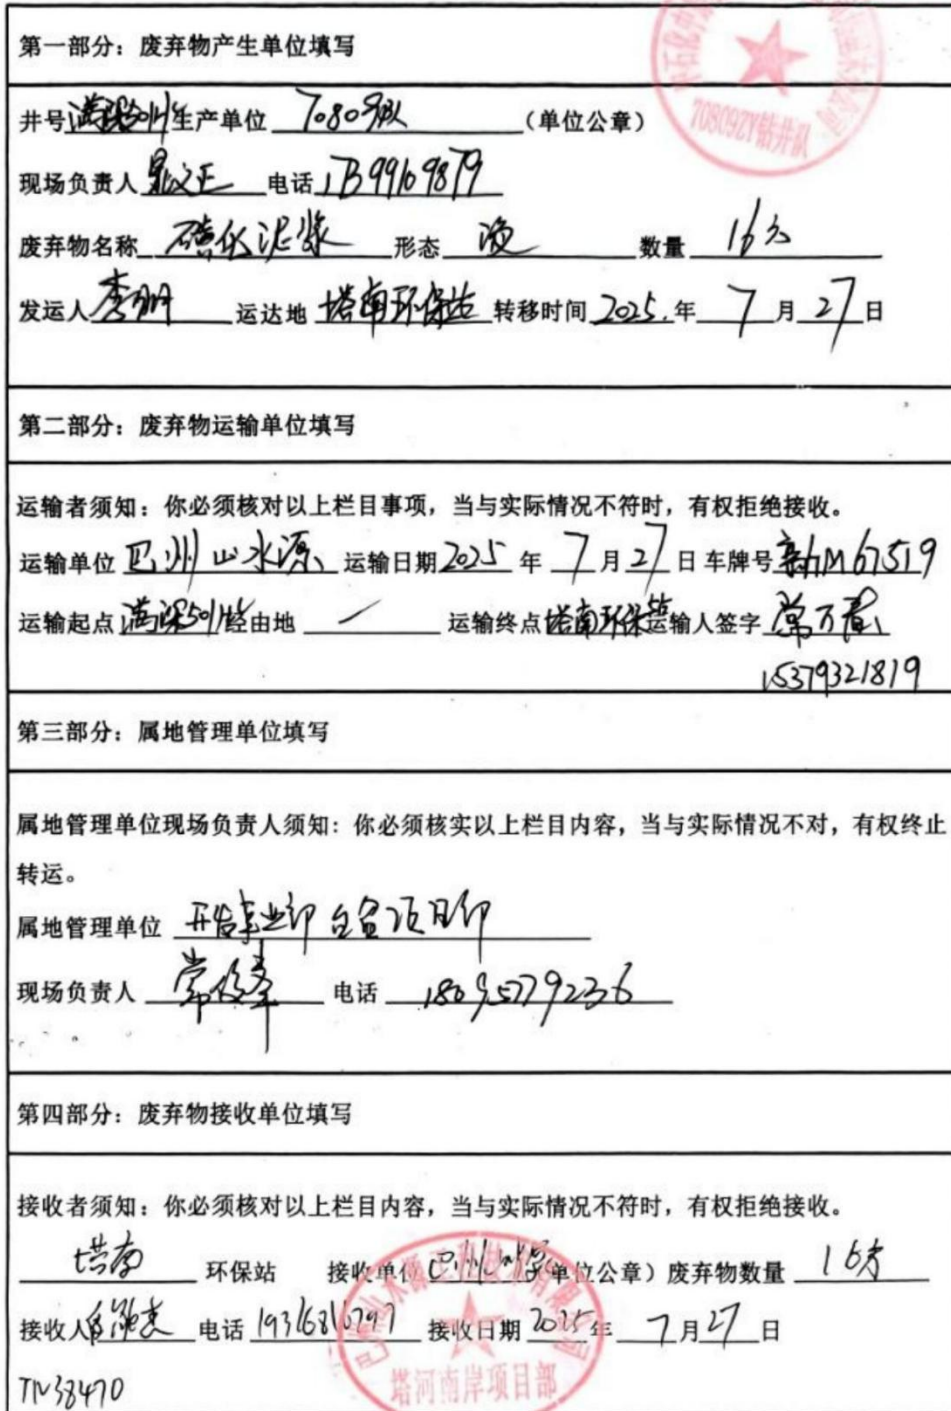 第一部分：废弃物产生单位填写
70809ZY钻井队
井号 满深501H 生产单位 70809队 （单位公章）
现场负责人 电话 13399169879
废弃物名称 磺化泥浆 形态 液 数量 16方
发运人 李明 运达地 塔南环保站 转移时间 2025.年 7 月 27 日
第二部分：废弃物运输单位填写
运输者须知：你必须核对以上栏目事项，当与实际情况不符时，有权拒绝接收。
运输单位 巴州山水源 运输日期 2025 年 7 月 27 日 车牌号 新M67519
运输起点 满深501H 经由地 / 运输终点 塔南环保站 运输人签字 常万春
15379321819
第三部分：属地管理单位填写
属地管理单位现场负责人须知：你必须核实以上栏目内容，当与实际情况不对，有权终止
转运。
属地管理单位 开发事业部 项目部
现场负责人 常俊峰 电话 18095779236
第四部分：废弃物接收单位填写
接收者须知：你必须核对以上栏目内容，当与实际情况不符时，有权拒绝接收。
塔南 环保站 接收单位 巴州山水源（单位公章）废弃物数量 16方
接收人 电话 19316816797 接收日期 2025 年 7 月 27 日
塔河南岸项目部
TN38470